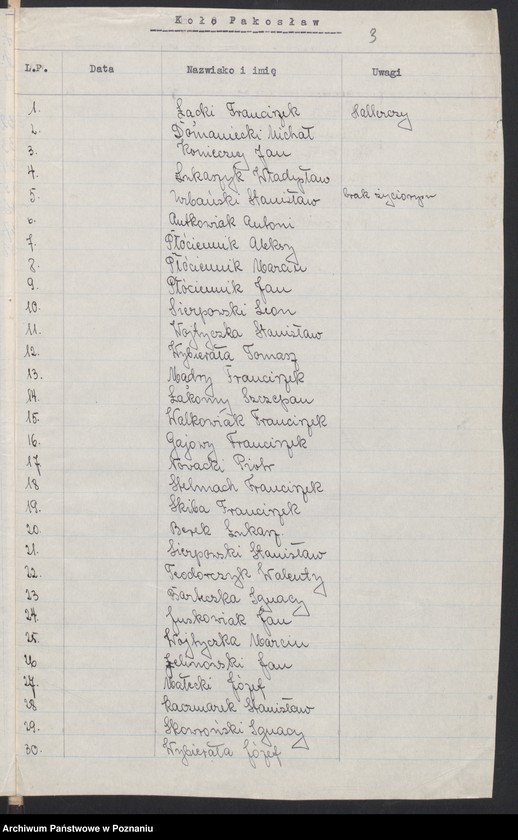 Koło Pakosław
3
L.P. Data Nazwisko i imię Uwagi
1. Łacki Franciszek Hallerczy
2. Domaniecki Michał
3. Konieczny Jan
4. Łukaszyk Władysław
5. Urbański Stanisław brak życiorysu
6. Antkowiak Antoni
7. Płóciennik Aleksy
8. Płóciennik Marcin
9. Płóciennik Jan
10. Sierpowski Leon
11. Wojtyczka Stanisław
12. Wybierała Tomasz
13. Mądry Franciszek
14. Łakomy Szczepan
15. Walkowiak Franciszek
16. Gajowy Franciszek
17 Nowacki Piotr
18 Stelmach Franciszek
19. Skiba Franciszek
20. Berek Łukasz
21. Sierpowski Stanisław
22. Teodorczyk Walenty
23 Bartoszka Ignacy
24. Juskowiak Jan
25. Wojtyczka Marcin
26 Zelinowski Jan
27. Małecki Józef
28 Kaczmarek Stanisław
29. Skowroński Ignacy
30. Wybierała Józef
Archiwum Państwowe w Poznaniu